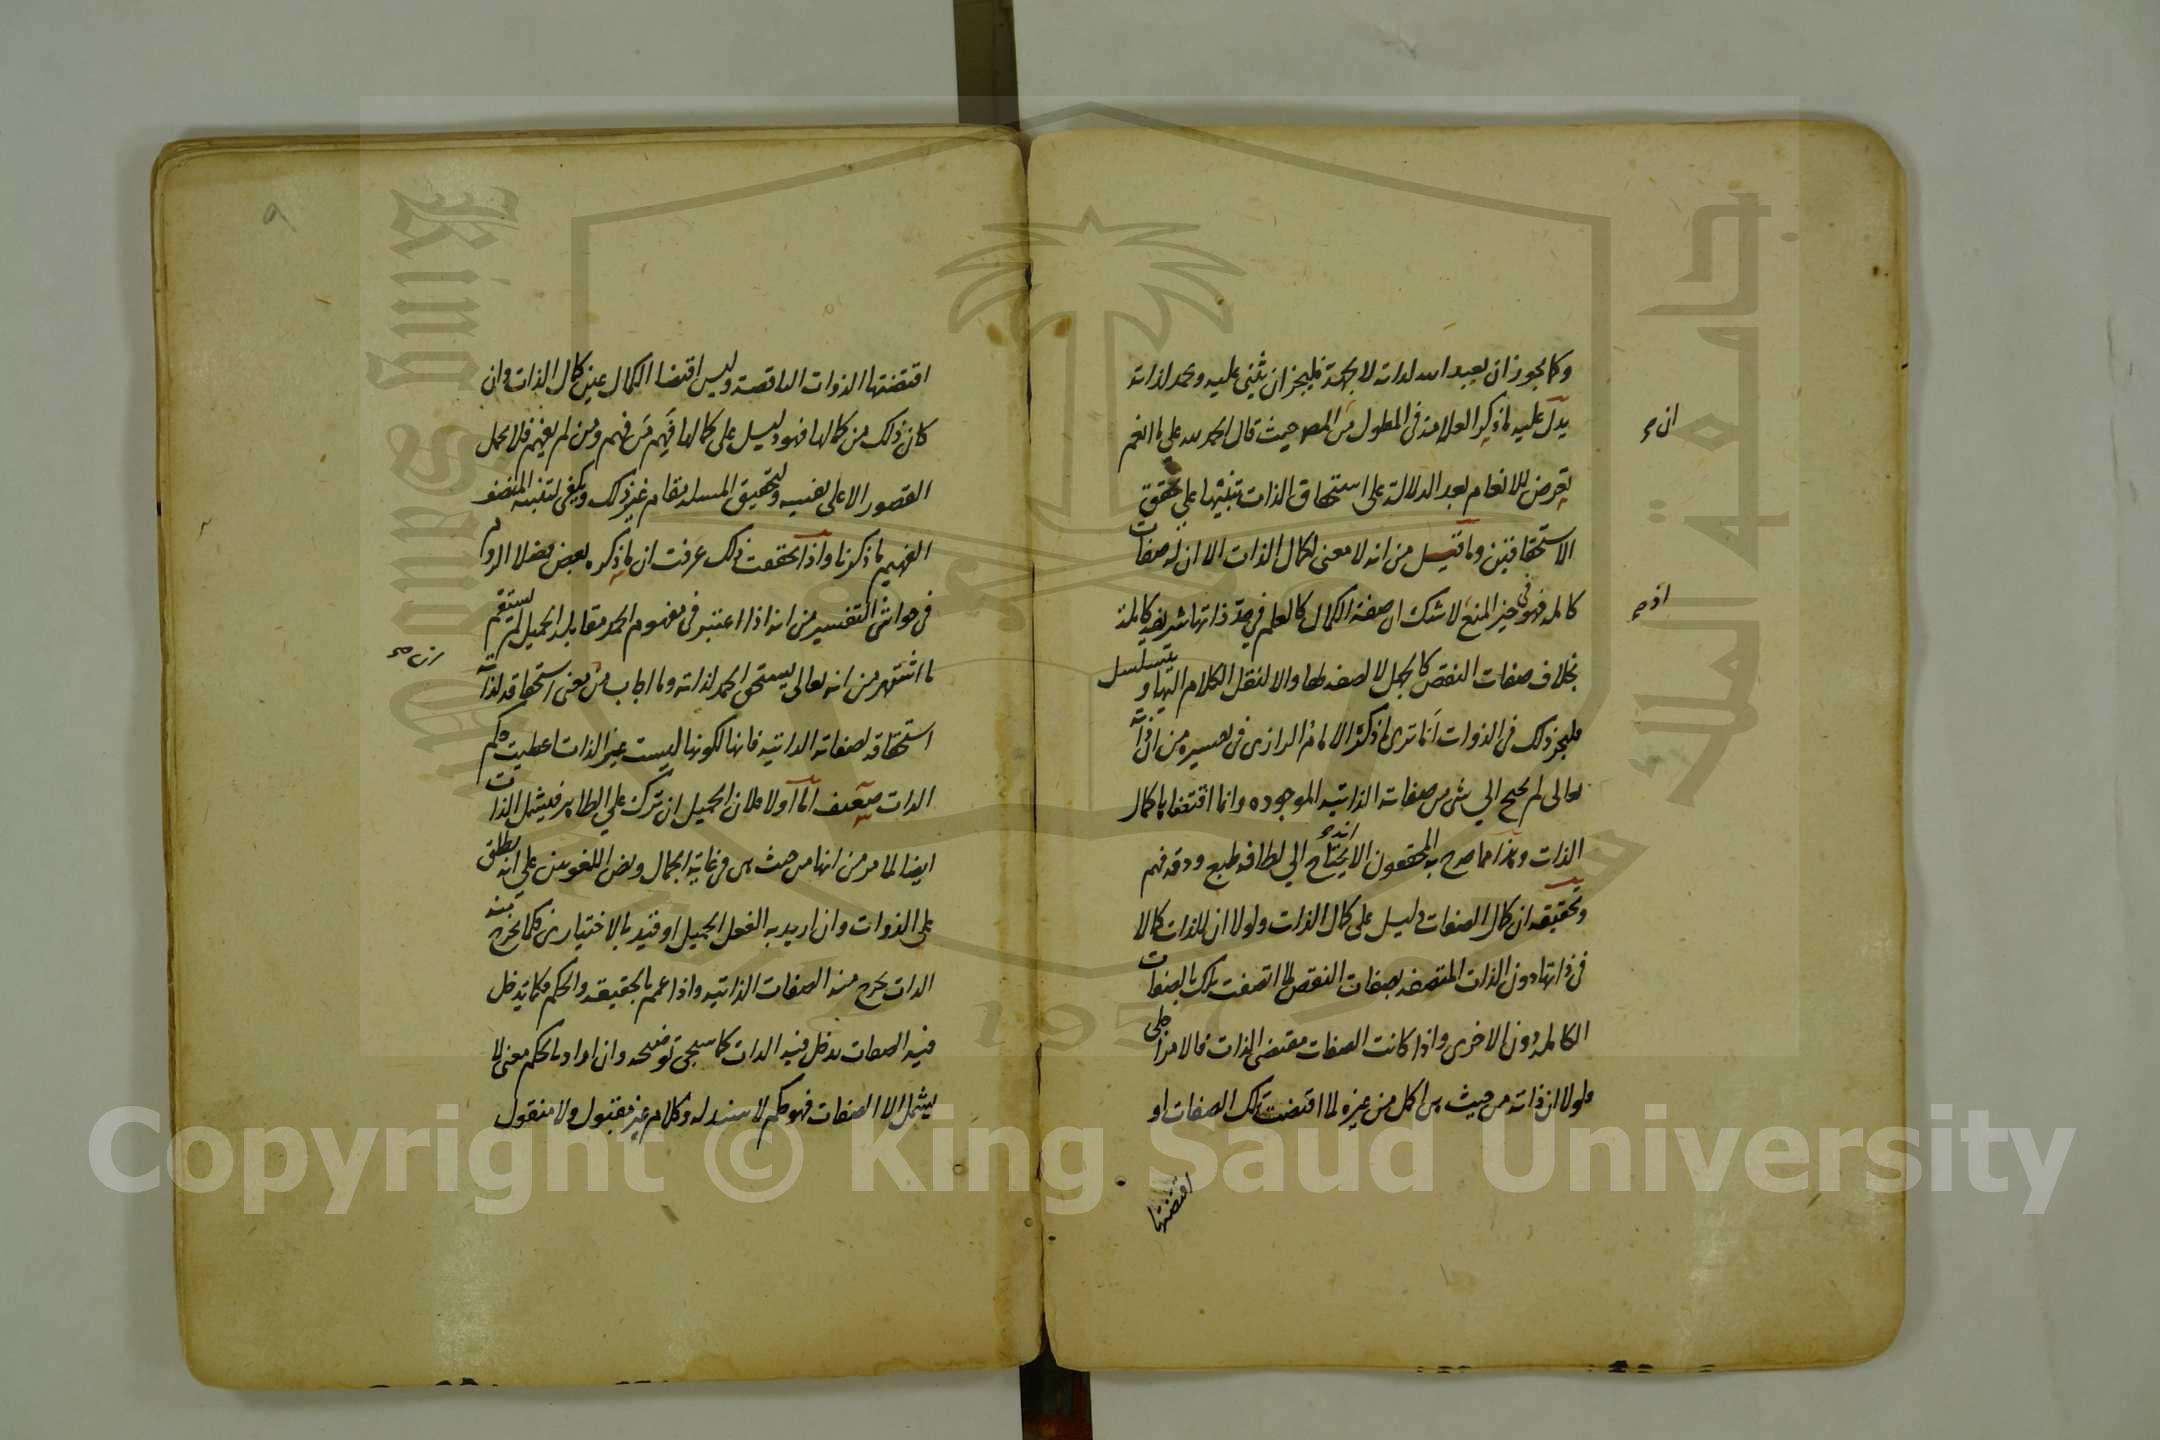 وكما يجوز ان يعبد الله لذاته لا لجهة فليجز ان يثنى عليه ويحمد لذاته
يدل عليه ما ذكر العلامة في المطول من المص حيث قال الحمد لله على ما انعم
تعرض للانعام بعد الدلالة على استحقاق الذات تنبيها على تحقق
الاستحقاقين وما قيل من انه لا معنى لكمال الذات الا ان له صفات
كاملة فهو في حيز المنع لا شك ان صفة الكمال كالعلم في حد ذاتها شريفة كاملة
بخلاف صفات النقص كالجهل لا لصفة لها والا لنقل الكلام اليها ويتسلسل
فليجز ذلك في الذوات اما ترى ما ذكره الامام الرازي في تفسيره من ان ذاته
تعالى لم يحتج الى شئ من صفاته الذاتية الموجوده وانما اقتضاها كمال
الذات وهذا مما صرح به المحققون الا انه يحتاج الى لطافة طبع ودقة فهم
وتحقيقه ان كمال الصفات دليل على كمال الذات ولولا ان للذات كمالا
في ذاتها دون الذات المتصفة بصفات النقص لما اتصفت بتلك الصفات
الكاملة دون الاخرى واذا كانت الصفات مقتضى الذات فالامر اجلى
ولولا ان ذاته من حيث هي اكمل من غيره لما اقتضت تلك الصفات او
اقتضتها
ان صح
اذ صح
اقتضتها الذوات الناقصة وليس اقتضا الكمال عين كمال الذات وان
كان ذلك من كمالها فهو دليل على كمالها فهم من فهم ومن لم يفهم فلا يحمل
القصور الا على نفسه ولتحقيق المسئلة مقام غير ذلك ويكفى لتنبه المنصف
الفهيم ما ذكرنا واذا تحققت ذلك عرفت ان ما ذكره بعض فضلا الروم
في حواشي التفسير من انه اذا اعتبر في مفهوم الحمد مقابلة الجميل لم يستقم
ما اشتهر من انه تعالى يستحق الحمد لذاته وما اجاب من معنى استحقاقه لذاته
استحقاقه لصفاته الذاتيه فانها لكونها ليست غير الذات اعطيت حكم
الذات ضعيف اما اولا فلان الجميل ان ترك على الظاهر فيشمل الذات
ايضا لما مر من انها من حيث هي في غاية الجمال ونص اللغويين على انه يطلق
على الذوات وان اريد به الفعل الجميل او قيد بالاختياري فكما يخرج منه
الذات يخرج منه الصفات الذاتيه واذا عمم بالحقيقة والحكم فكما يدخل
فيه الصفات يدخل فيه الذات كما سيجئ توضيحه وان اراد بالحكم معنى لا
يشمل الا الصفات فهو حكم لا سند له وكلام غير مقبول ولا منقول
King Saud University
جامعة الملك سعود
1957
Copyright © King Saud University